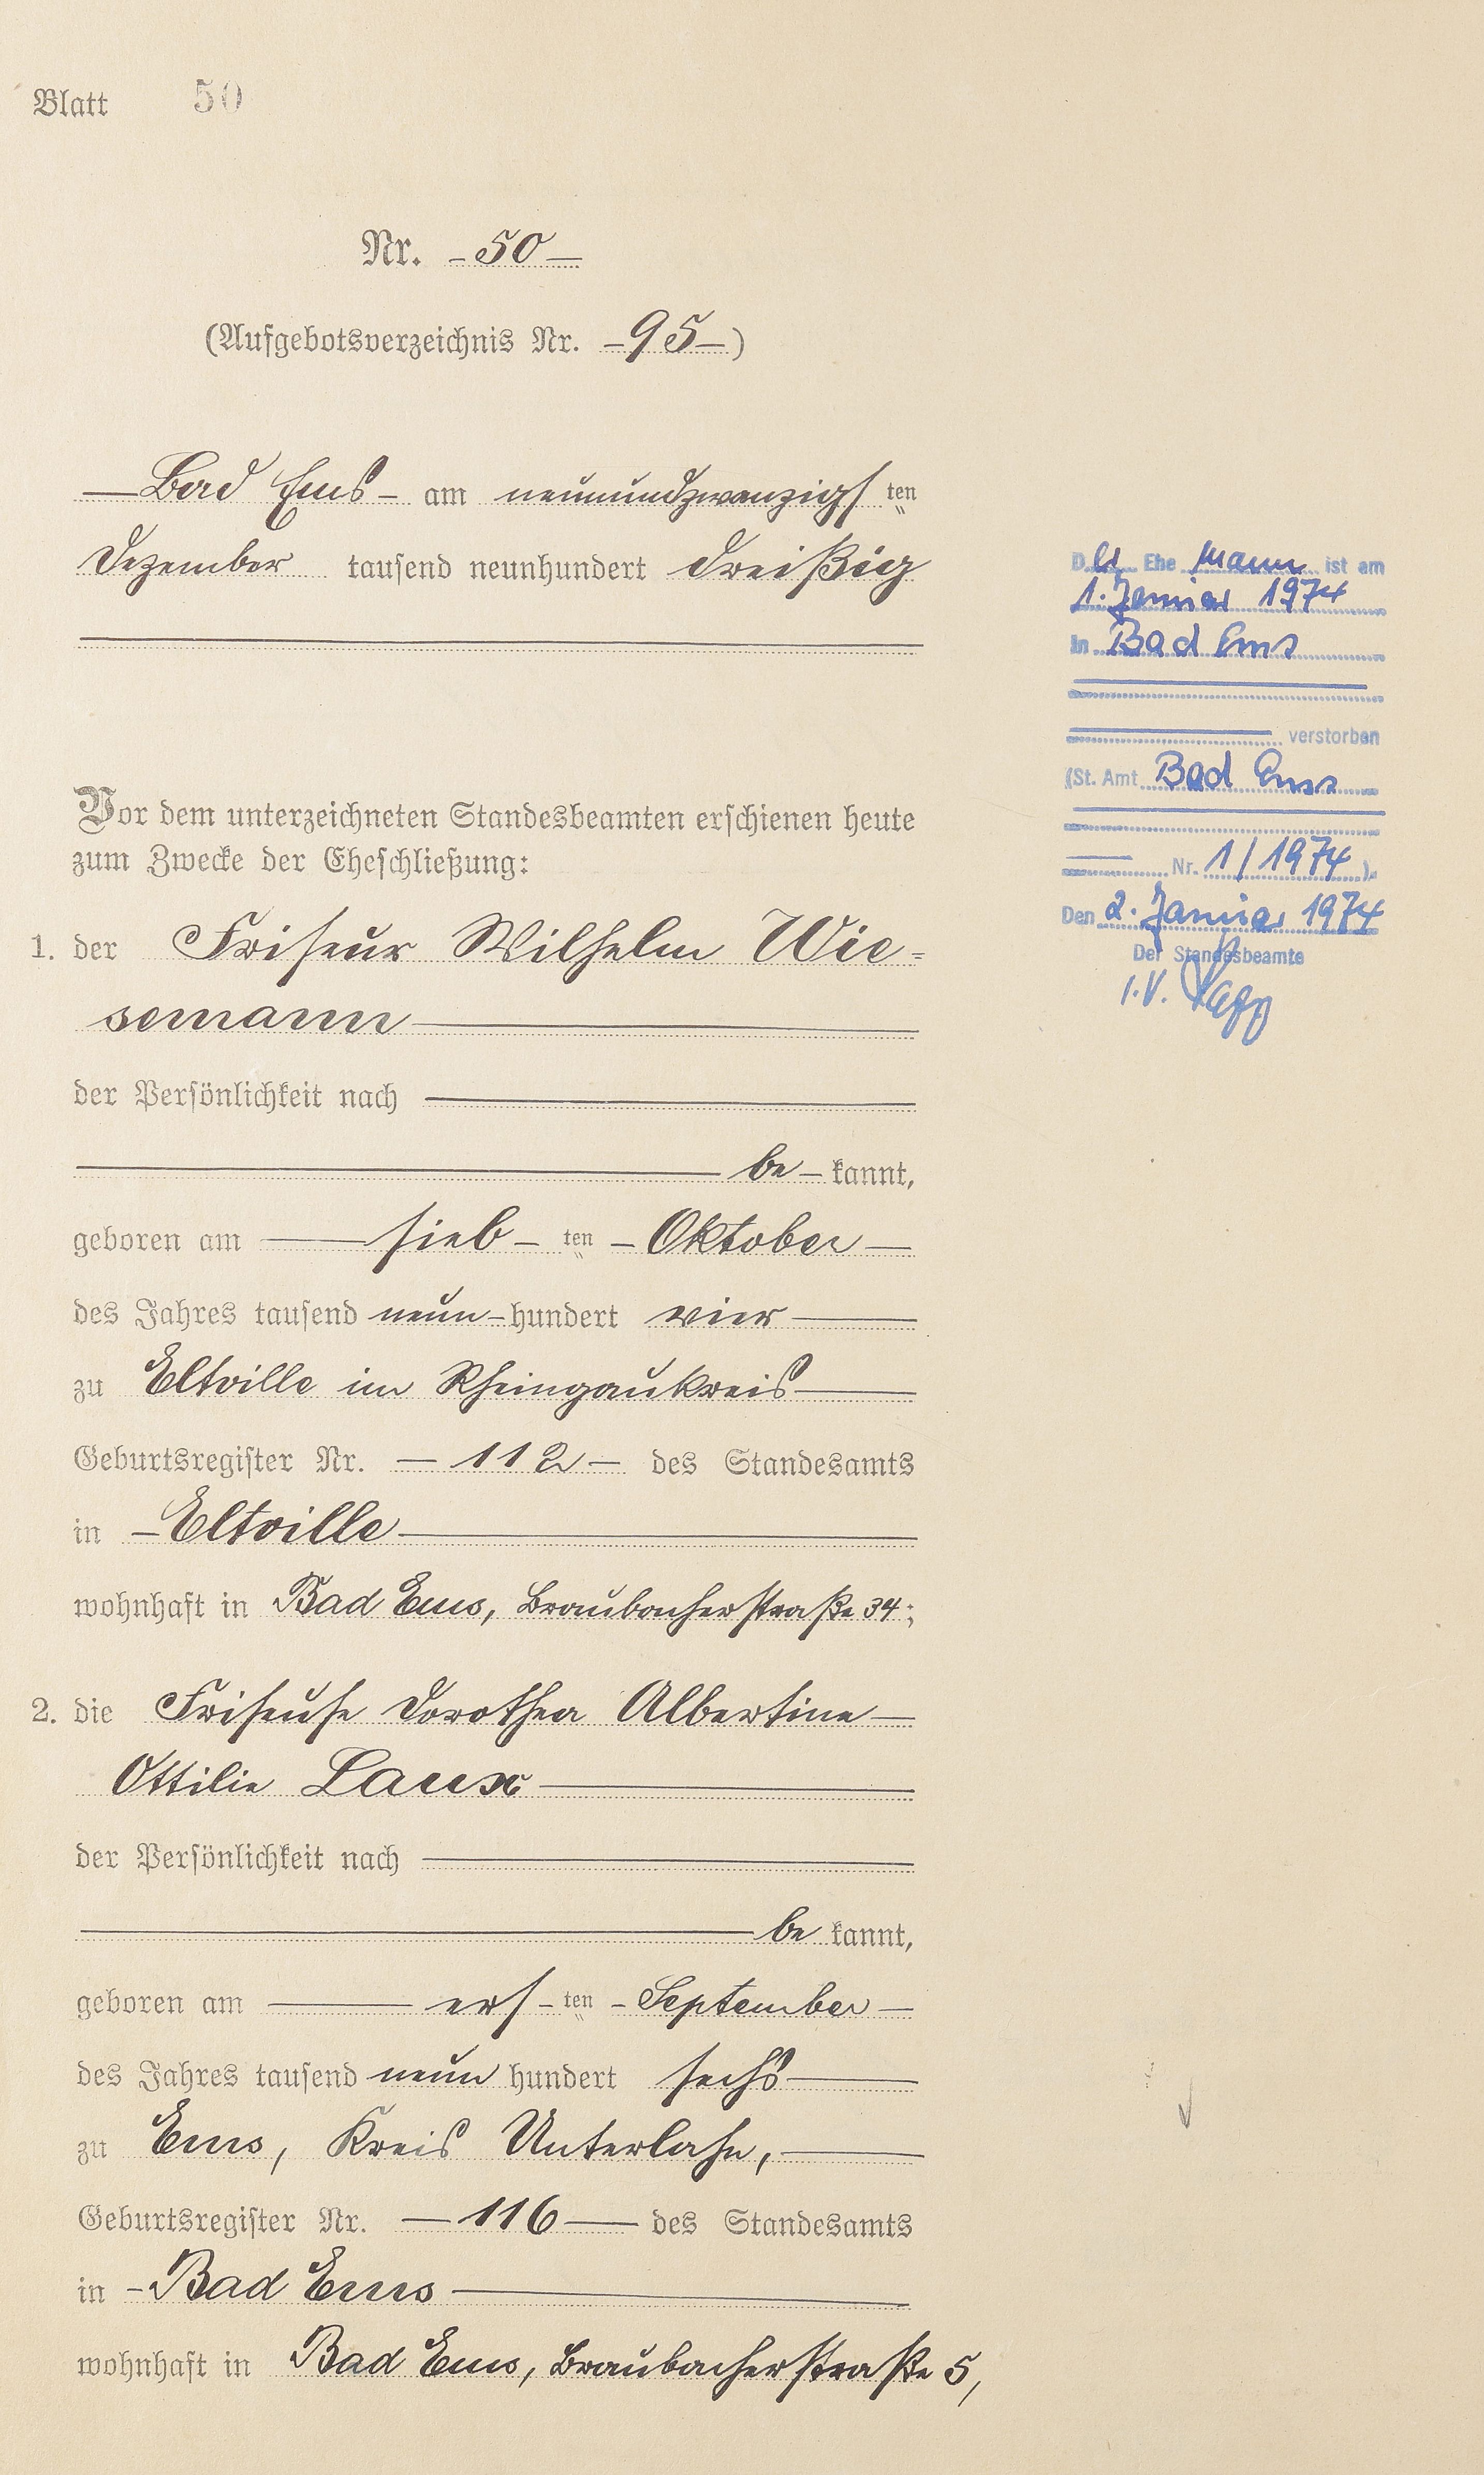 Blatt 50
Nr. – 50 –
(Aufgebotsverzeichnis Nr. – 95 –)
— Bad Ems – am neunundzwanzigs ten
Dezember tausend neunhundert dreißig
Vor dem unterzeichneten Standesbeamten erschienen heute
zum Zwecke der Eheschließung:
1. der Friseur Wilhelm Wie=
semann
der Persönlichkeit nach
be – kannt,
geboren am — sieb – ten – Oktober —
des Jahres tausend neun – hundert vier —
zu Eltville im Rheingaukreis —
Geburtsregister Nr. — 112 – des Standesamts
in – Eltville —
wohnhaft in Bad Ems, Braubacherstraße 34;
2. die Friseuse Dorothea Albertine —
Ottilie Laux —
der Persönlichkeit nach —
be kannt,
geboren am — ers – ten – September —
des Jahres tausend neun hundert sechs —
zu Ems, Kreis Unterlahn, —
Geburtsregister Nr. — 116 — des Standesamts
in – Bad Ems —
wohnhaft in Bad Ems, Braubacherstraße 5,
D er Ehe mann ist am
1. Januar 1974
in Bad Ems
verstorben
(St. Amt Bad Ems
Nr. 1/1974 ).
Den 2. Januar 1974
Der Standesbeamte
I.V.